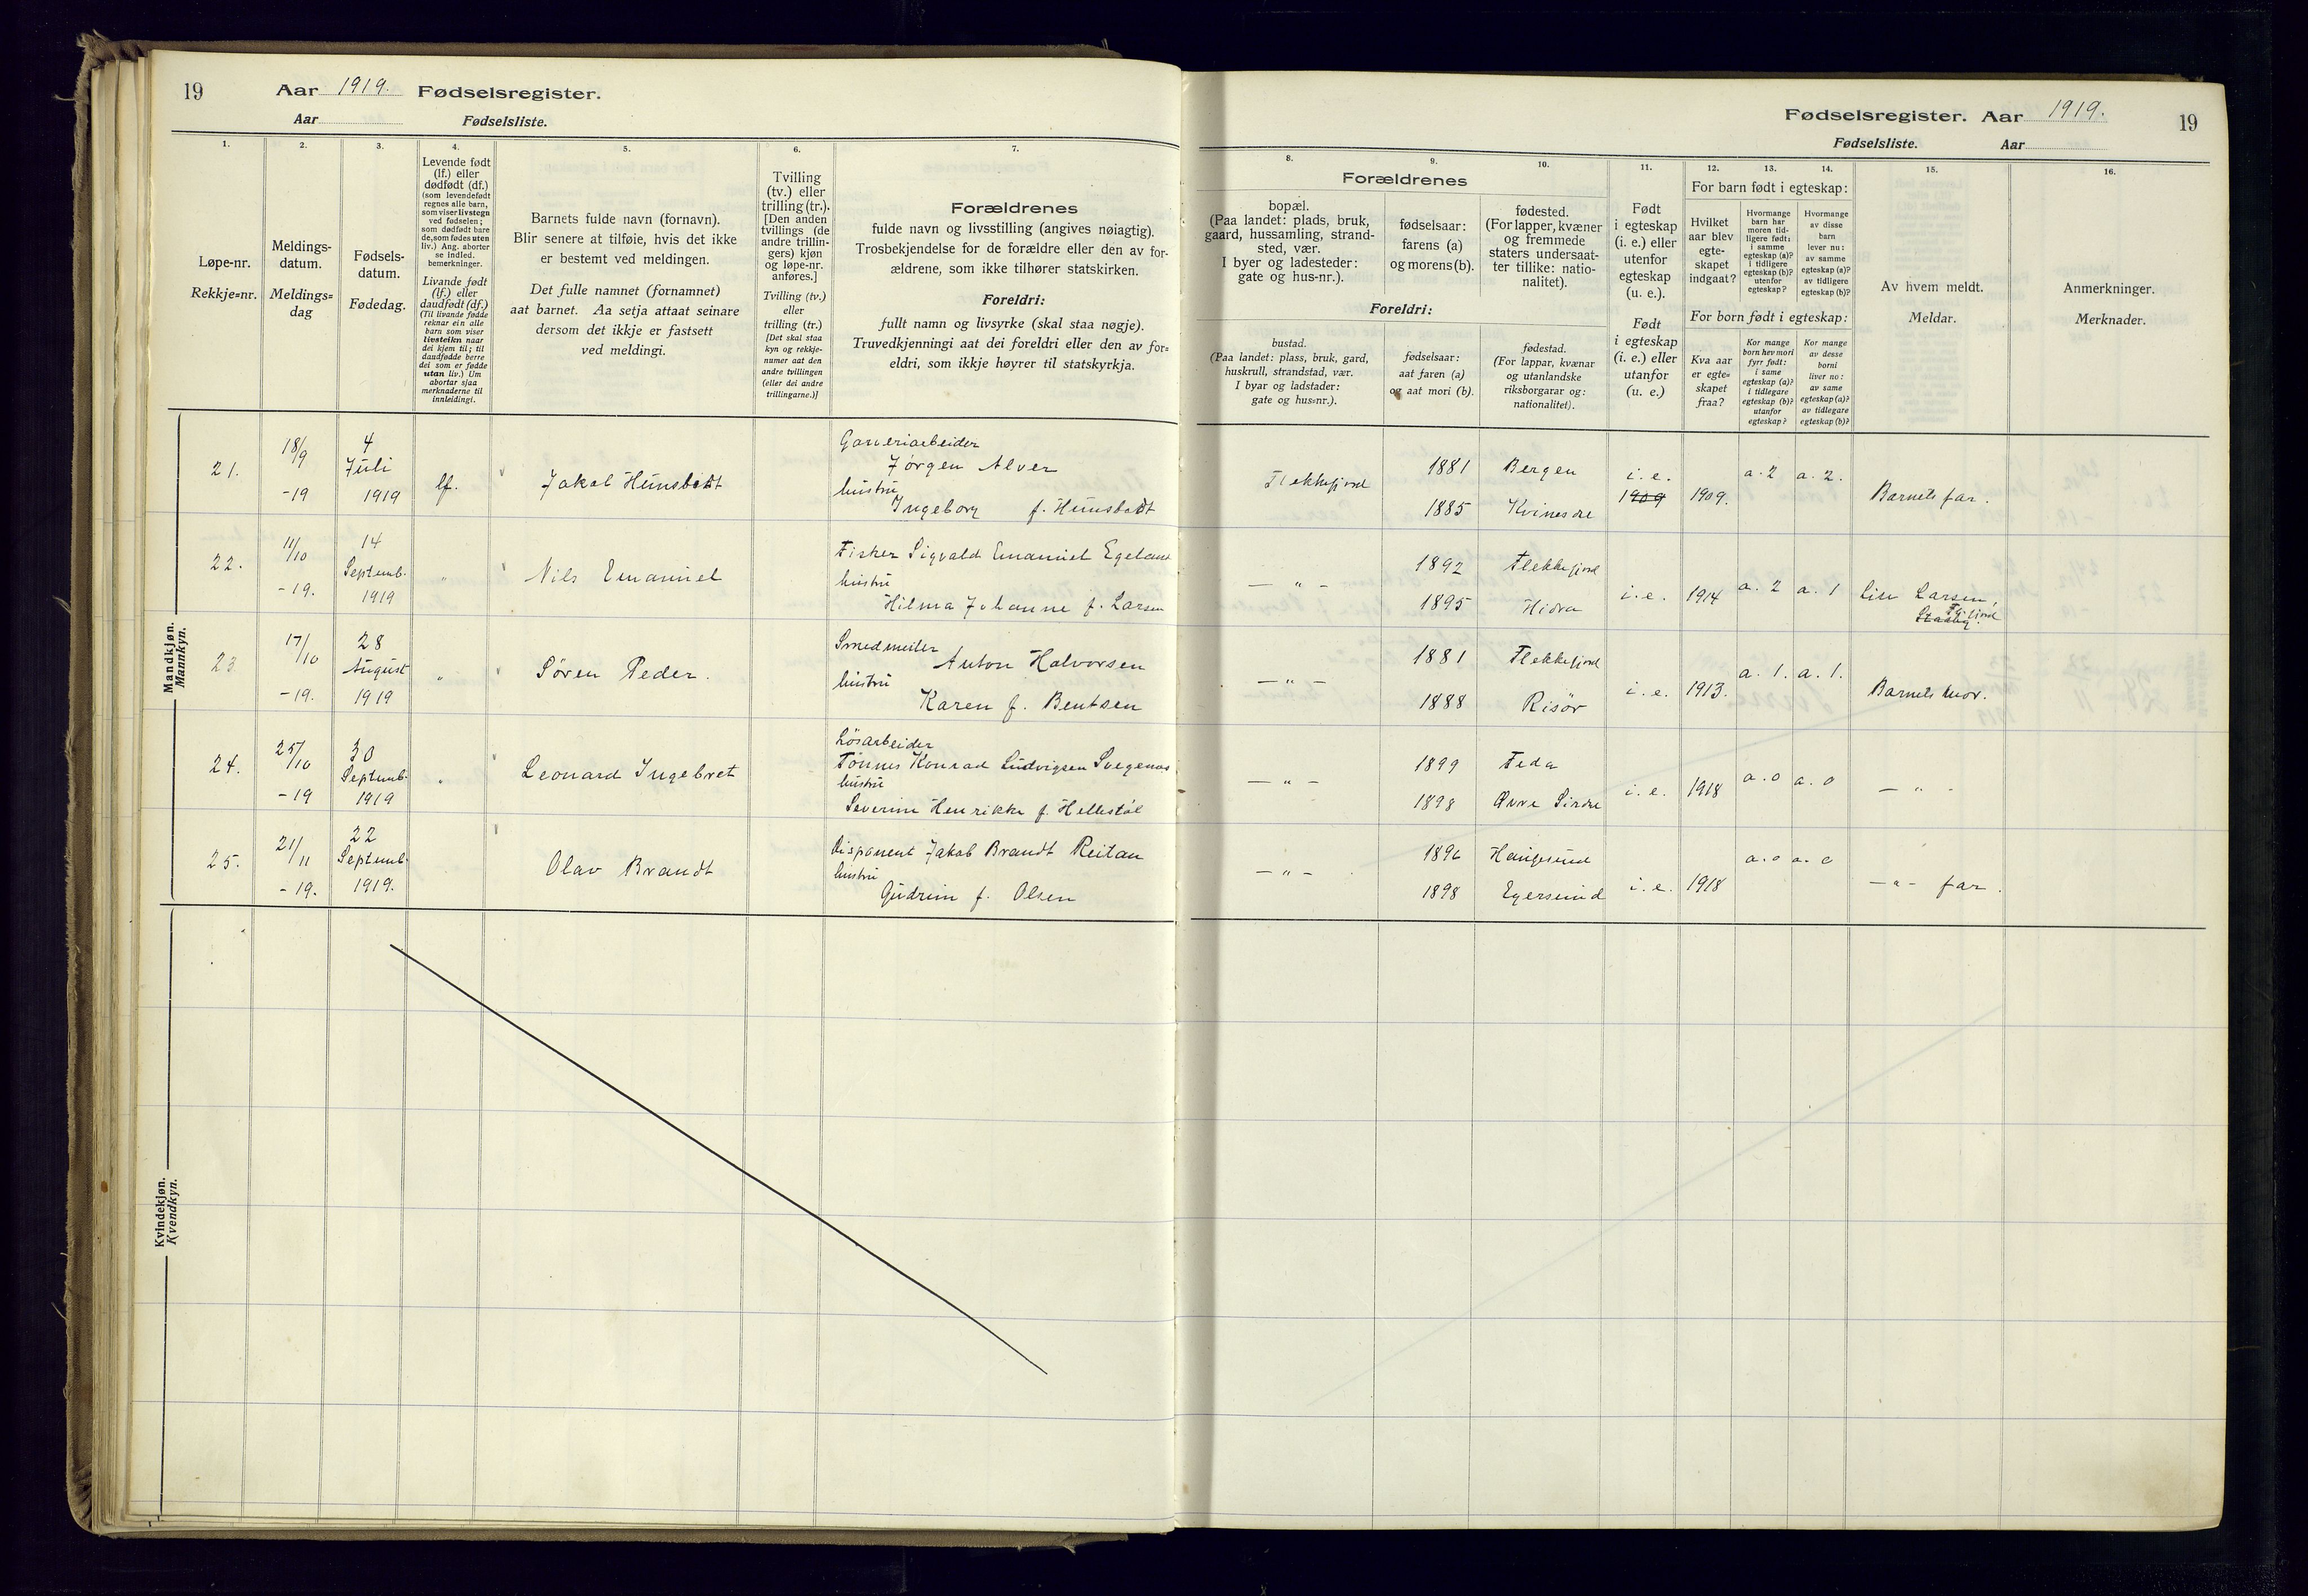 19
Aar 1919. Fødselsregister.
Aar Fødselsliste.
1.
Løpe-nr.
Rekkje=nr.
2.
Meldings-
datum.
Meldings=
dag
3.
Fødsels-
datum.
Fødedag.
4.
Levende født
(lf.) eller
dødfødt (df.)
(som levendefødt
regnes alle barn,
som viser livstegn
ved fødselen;
som dødfødt bare
de, som fødes uten
liv.) Ang. aborter
se indled.
bemerkninger.
Livande født
(lf.) eller
daudfødt (df.)
(Til livande fødde
reknar ein alle
barn som viser
livsteikn naar
dei kjem til; til
daudfødde berre
dei som er fødde
utan liv.) Um
abortar sjaa
merknaderne til
innleidingi.
5.
Barnets fulde navn (fornavn).
Blir senere at tilføie, hvis det ikke
er bestemt ved meldingen.
Det fulle namnet (fornamnet)
aat barnet. Aa setja attaat seinare
dersom det ikkje er fastsett
ved meldingi.
6.
Tvilling
(tv.) eller
trilling (tr.).
[Den anden
tvillings (de
andre trillin-
gers) kjøn
og løpe-nr.
anføres.]
Tvilling (tv.)
eller
trilling (tr.)
[Det skal staa
kyn og rekkje-
numer aat den
andre tvillingen
(eller dei andre
trillingarne.)]
7.
Forældrenes
fulde navn og livsstilling (angives nøiagtig).
Trosbekjendelse for de forældre eller den av for-
ældrene, som ikke tilhører statskirken.
Foreldri:
fullt namn og livsyrke (skal staa nøgje).
Truvedkjenningi aat dei foreldri eller den av for=
eldri, som ikkje høyrer til statskyrkja.
Mandkjøn.
Mannkyn.
21.
18/9
-19
4
Juli
1919
lf.
Jakob Hunsbedt
Garveriarbeider
Jørgen Alver
hustru
Ingeborg f. Hunsbedt
22.
11/10
-19.
14
Septemb.
1919
"
Nils Emanuel
Fisker Sigvald Emanuel Egeland
hustru
Hilma Johanne f. Larsen
23.
17/10
-19.
28
August
1919
"
Søren Peder.
Smedmester
Anton Halvorsen
hustru
Karen f. Bentsen
24.
25/10
-19
30
Septemb.
1919
"
Leonard Ingebret
Løsarbeider
Tønnes Konrad Ludvigsen
hustru
Severine Henrikke f. Hellestøl
25.
21/11
-19.
22
Septemb.
1919.
Olav Brandt
Disponent Jakob Brandt Reitan
hustru
Gudrun f. Olsen
Kvindekjøn.
Kvendkyn.
Fødselsregister. Aar 1919.
19
Fødselsliste. Aar
8.
Forældrenes
bopæl.
(Paa landet: plads, bruk,
gaard, hussamling, strand-
sted, vær.
I byer og ladesteder:
gate og hus-nr.).
9.
fødselsaar:
farens (a)
og morens (b).
10.
fødested.
(For lapper, kvæner
og fremmede
staters undersaat-
ter tillike: natio-
nalitet).
Foreldri:
bustad.
(Paa landet: plass, bruk, gard,
huskrull, strandstad, vær.
I byar og ladstader:
gate og hus=nr.).
fødselsaar:
aat faren (a)
og aat mori (b).
fødestad.
(For lappar, kvænar
og utanlandske
riksborgarar og:
nationalitet).
11.
Født
i egteskap
(i. e.) eller
utenfor
egteskap
(u. e.).
Født
i egteskap
(i. e.) eller
utanfor
(u. e.)
12. 13. 14.
For barn født i egteskap:
Hvilket
aar blev
egte-
skapet
indgaat?
Hvormange
barn har
moren tid-
ligere født:
i samme
egteskap (a)?
i tidligere
egteskap (b)?
utenfor
egteskap?
Hvormange
av disse
barn
lever nu:
av samme
egteskap (a)?
av tidligere
egteskap (b)?
For born født i egteskap:
Kva aar
er egte=
skapet
fraa?
Kor mange
born hev mori
fyrr født:
i same
egteskap (a)?
i tidlegare
egteskap (b)?
utanfor
egteskap?
Kor mange
av desse
borni
liver no:
av same
egteskap (a)?
av tidlegare
egteskap (b)?
15.
Av hvem meldt.
Meldar.
16.
Anmerkninger.
Merknader.
Flekkefjord
1881
1885
Bergen
Kvinesdal
i. e.
1909
1909.
a. 2
a. 2.
Barnets far.
— " —
1892
1895
Flekkefjord
Hidra
i. e.
1914
a. 2
a. 1
Larsen,
— " —
1881
1888
Flekkefjord
Risør
i. e.
1913.
a. 1.
a. 1.
Barnets mor.
— " —
1899
1898
Feda
Øvre Sirdal
i. e.
1918
a. 0
a. 0
— " -
— " —
1896
1898
Haugesund
Egersund
i. e.
1918
a. 0
a. 0
— " - far.